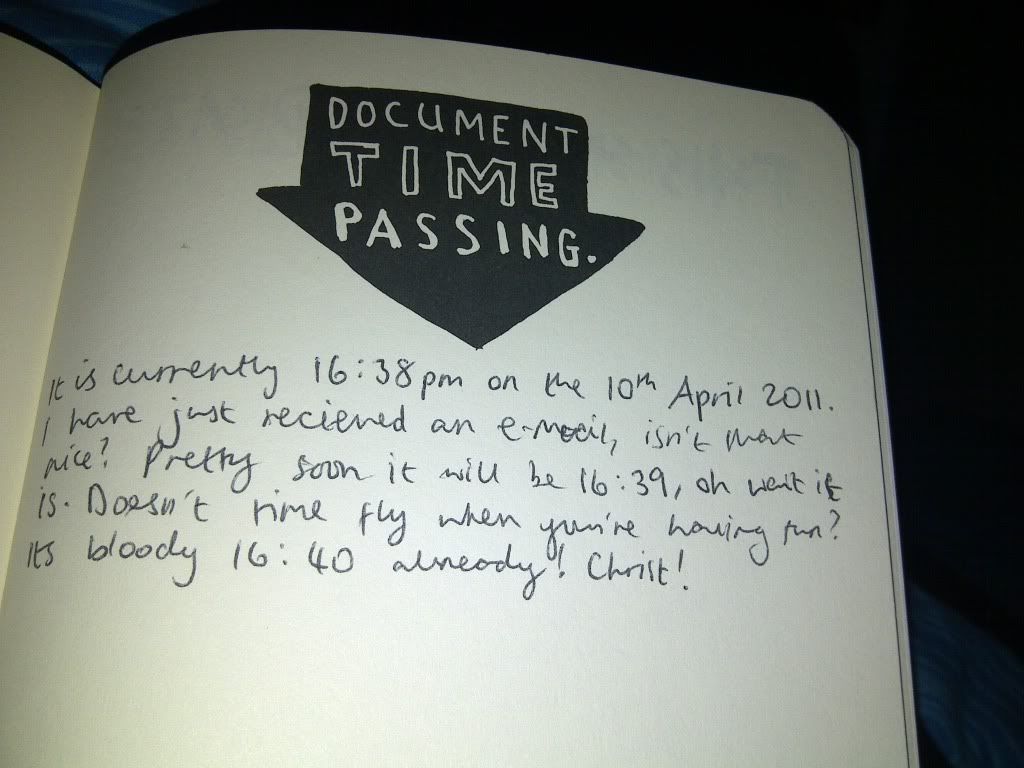 DOCUMENT
TIME
PASSING.
It is currently 16:38pm on the 10th April 2011.
I have just recieved an e-mail, isn't that
nice? Pretty soon it will be 16:39, oh wait it
is. Doesn't time fly when you're having fun?
Its bloody 16:40 already! Christ!